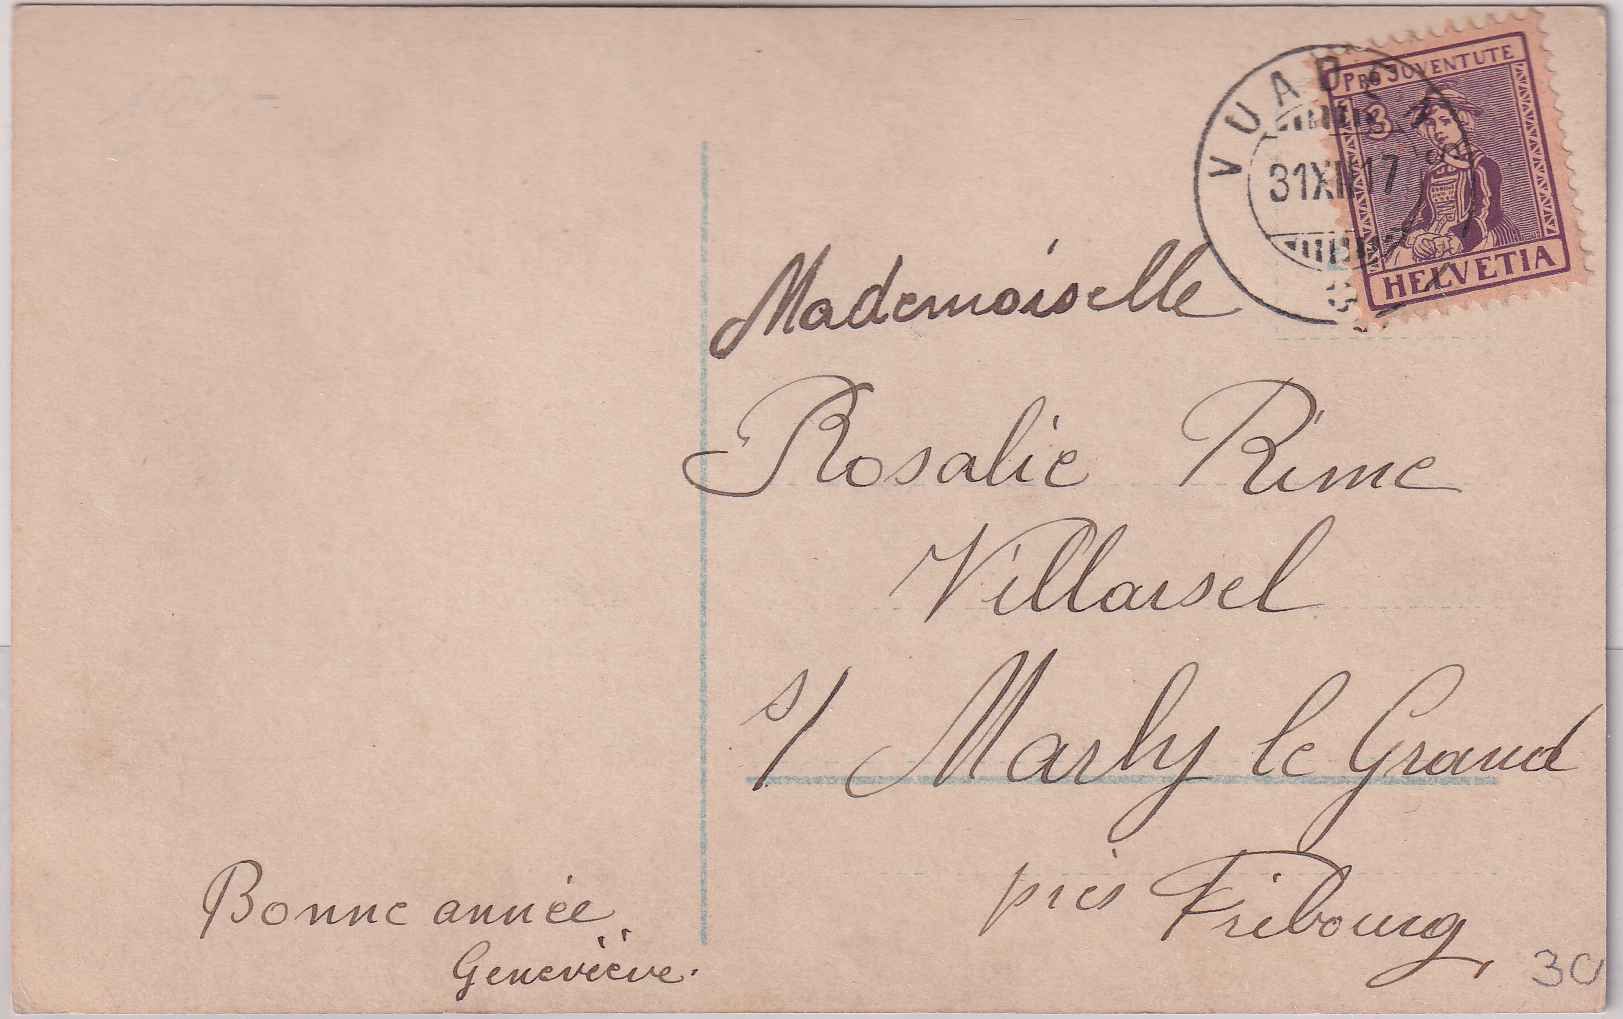 PRO JUVENTUTE
3
HELVETIA
31 XII 17
Mademoiselle
Rosalie Rime
Villarsel
s/ Marly le Grand
près Fribourg
Bonne année
Geneviève.
30